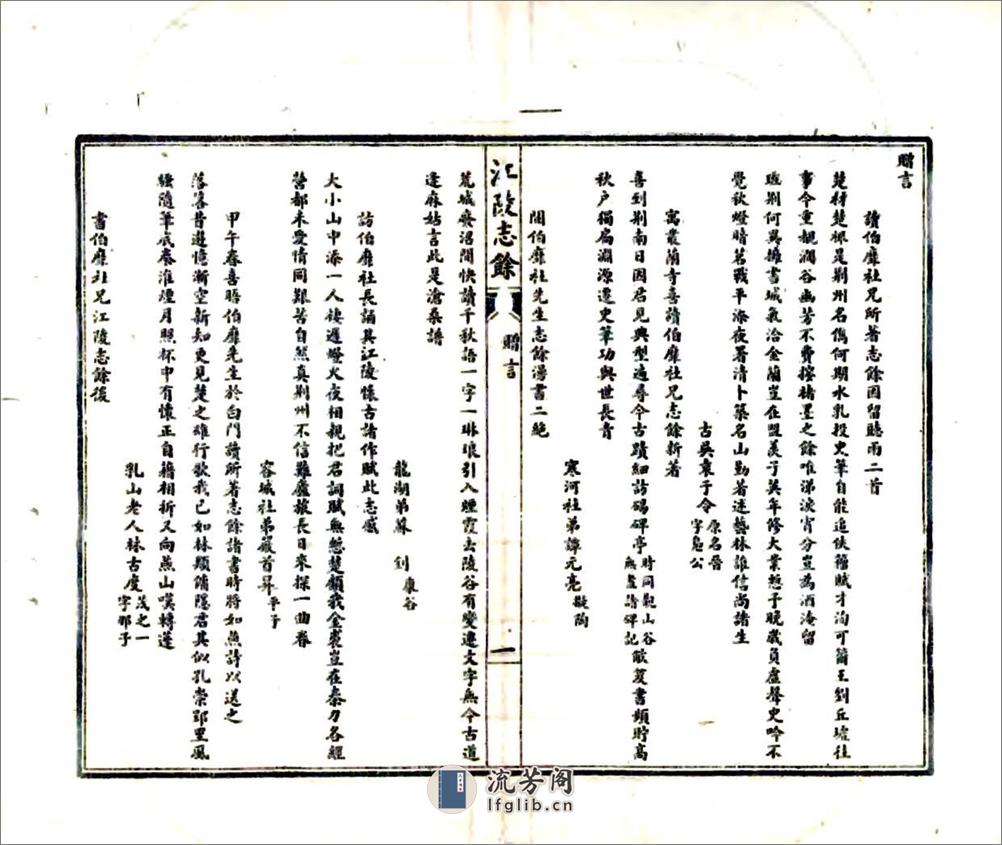 贈言
讀伯靡社兄所著志餘因留聽雨二首
楚材楚梛是荊州名儁何期水乳投史筆自能追佚舊賦才洵可籥王劉丘墟往
事今重覩澗谷幽芳不費搜楮墨之餘唯涕淚宵分豈為酒淹留
逖荊何異擁書城氣洽金蘭豈在盟羨子英年修大業愁予晚歲負虛聲史吟不
覺秋燈暗茗戰平添夜署清卜築名山勤著述藝林誰信尚諸生
古吳袁于令 原名晉 字鳧公
寓叢蘭寺喜讀伯靡社兄志餘新著
喜到荊南日因君見典型遍尋今古蹟細訪碣碑亭 時同觀山谷 無盡請碑記 散笈書頻貯高
秋戶獨扃淵源遷史筆功與世長青
寒河社弟譚元亮 擬陶
閱伯靡社先生志餘漫書二絕
江陵志餘
贈言
一
荒城廢沼間快讀千秋語一字一琳琅引入煙霞去陵谷有變遷文字無今古道
逢麻姑言此是滄桑譜
龍湖弟蘇 釗 康谷
訪伯靡社長誦其江陵懷古諸作賦此志感
大小山中添一人棲遲燈火夜相親把君詞賦無慙楚顧我金裘豈在秦刀各經
營都未受情同艱苦自然真荊州不信難廬旅長日來探一曲春
容城社弟嚴首昇 平子
甲午春喜晤伯靡先生於白門讀所著志餘諸書時將如燕詩以送之
落落昔遊憶漸空新知更見楚之雄行歌我已如林類脩隱君其似孔崇郢里風
騷隨筆底秦淮煙月照杯中有懷正自藉相折又向燕山嘆轉蓬
乳山老人林古度 茂之一 字那子
書伯靡社兄江陵志餘後
流芳阁
lfglib.cn